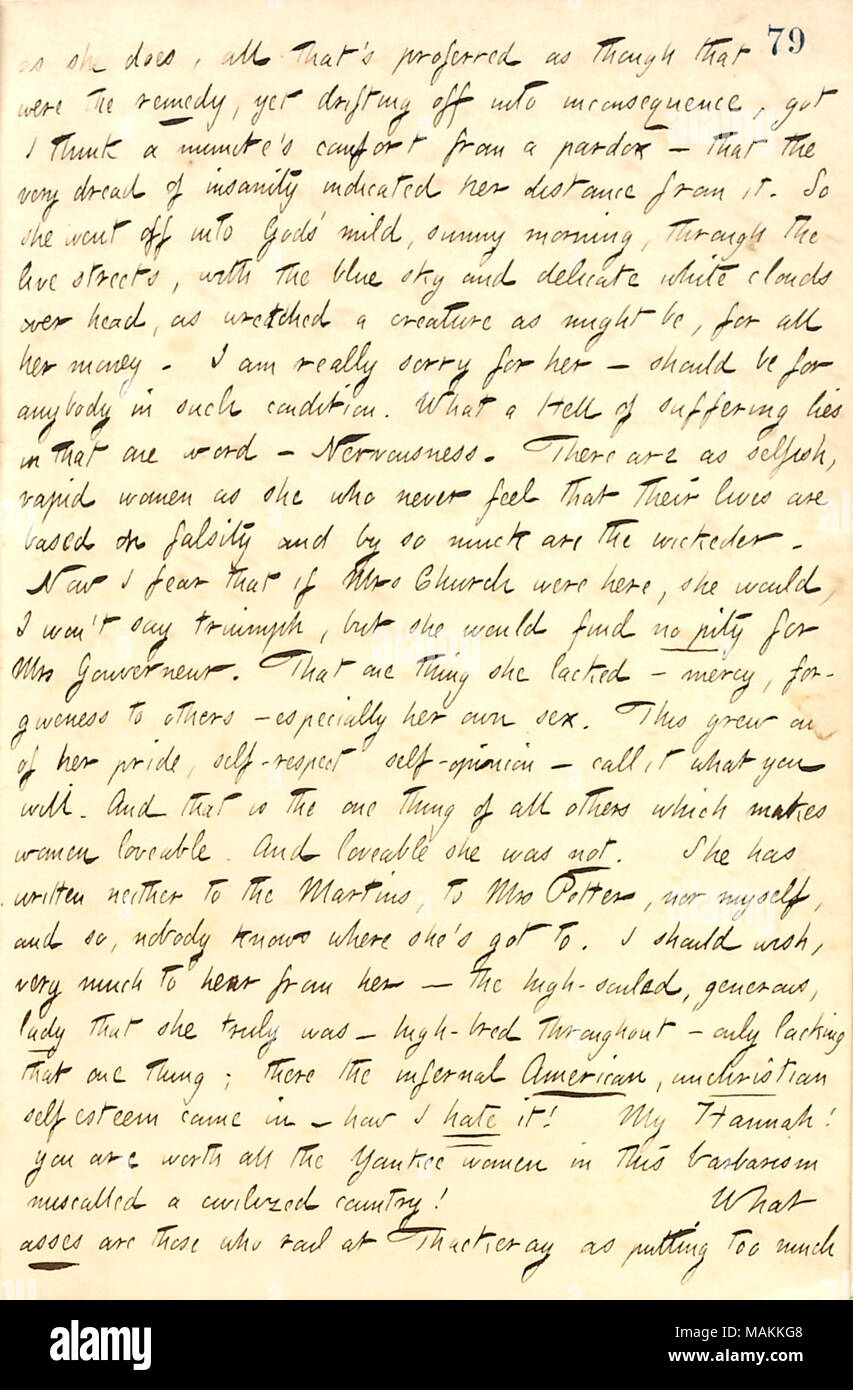 79
as she does, all that's proferred as though that
were the remedy, yet drifting off into inconsequence, got
I think a minute's comfort from a pardox — that the
very dread of insanity indicated her distance from it. So
she went off into Gods' mild, sunny morning, through the
live streets, with the blue sky and delicate white clouds
over head, as wretched a creature as might be, for all
her money. I am really sorry for her — should be for
anybody in such condition. What a Hell of suffering lies
in that one word — Nervousness. There are as selfish,
vapid women as she who never feel that their lives are
based on falsity and by so much are the wickeder.
Now I fear that if Mrs Church were here, she would,
I won't say triumph, but she would find no pity for
Mrs Gouverneur. That one thing she lacked — mercy, for-
giveness to others — especially her own sex. This grew ou
of her pride, self-respect self-opinion — call it what you
will. And that is the one thing of all others which makes
women loveable. And loveable she was not. She has
written neither to the Martins, to Mrs Potter, nor myself,
and so, nobody knows where she's got to. I should wish,
very much to hear from her — the high-souled, generous,
lady that she truly was — high-bred throughout — only lacking
that one thing; there the infernal American, unchristian
self esteem came in — how I hate it! My Hannah!
you are worth all the Yankee women in this barbarism
miscalled a civilized country! What
asses are those who rail at Thackeray as putting too much
alamy
Image ID: MAKKG8
www.alamy.com